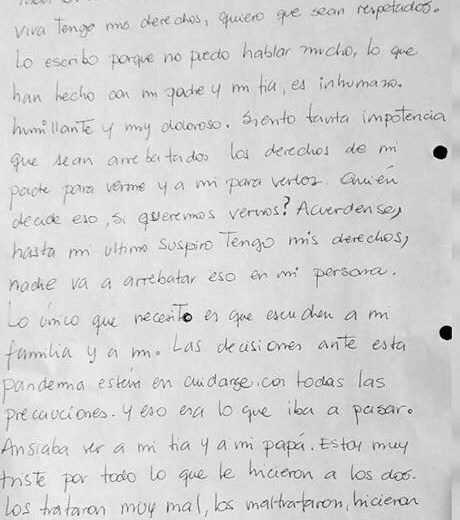 viva tengo mis derechos, quiero que sean respetados.
Lo escribo porque no puedo hablar mucho, lo que
han hecho con mi padre y mi tia, es inhumano.
humillante y muy doloroso. Siento tanta impotencia
que sean arrebatados los derechos de mi
padre para verme y a mi para verlos. Quién
decide eso, si queremos vernos? Acuerdense,
hasta mi ultimo suspiro Tengo mis derechos,
nadie va a arrebatar eso en mi persona.
Lo único que necesito es que escuchen a mi
familia y a mi. Las decisiones ante esta
pandemia estein en cuidarse, con todas las
precauciones. y eso era lo que iba a pasar.
Ansiaba ver a mi tia y a mi papá. Estoy muy
triste por todo lo que le hicieron a los dos.
Los trataron muy mal, los maltrataron, hicieron